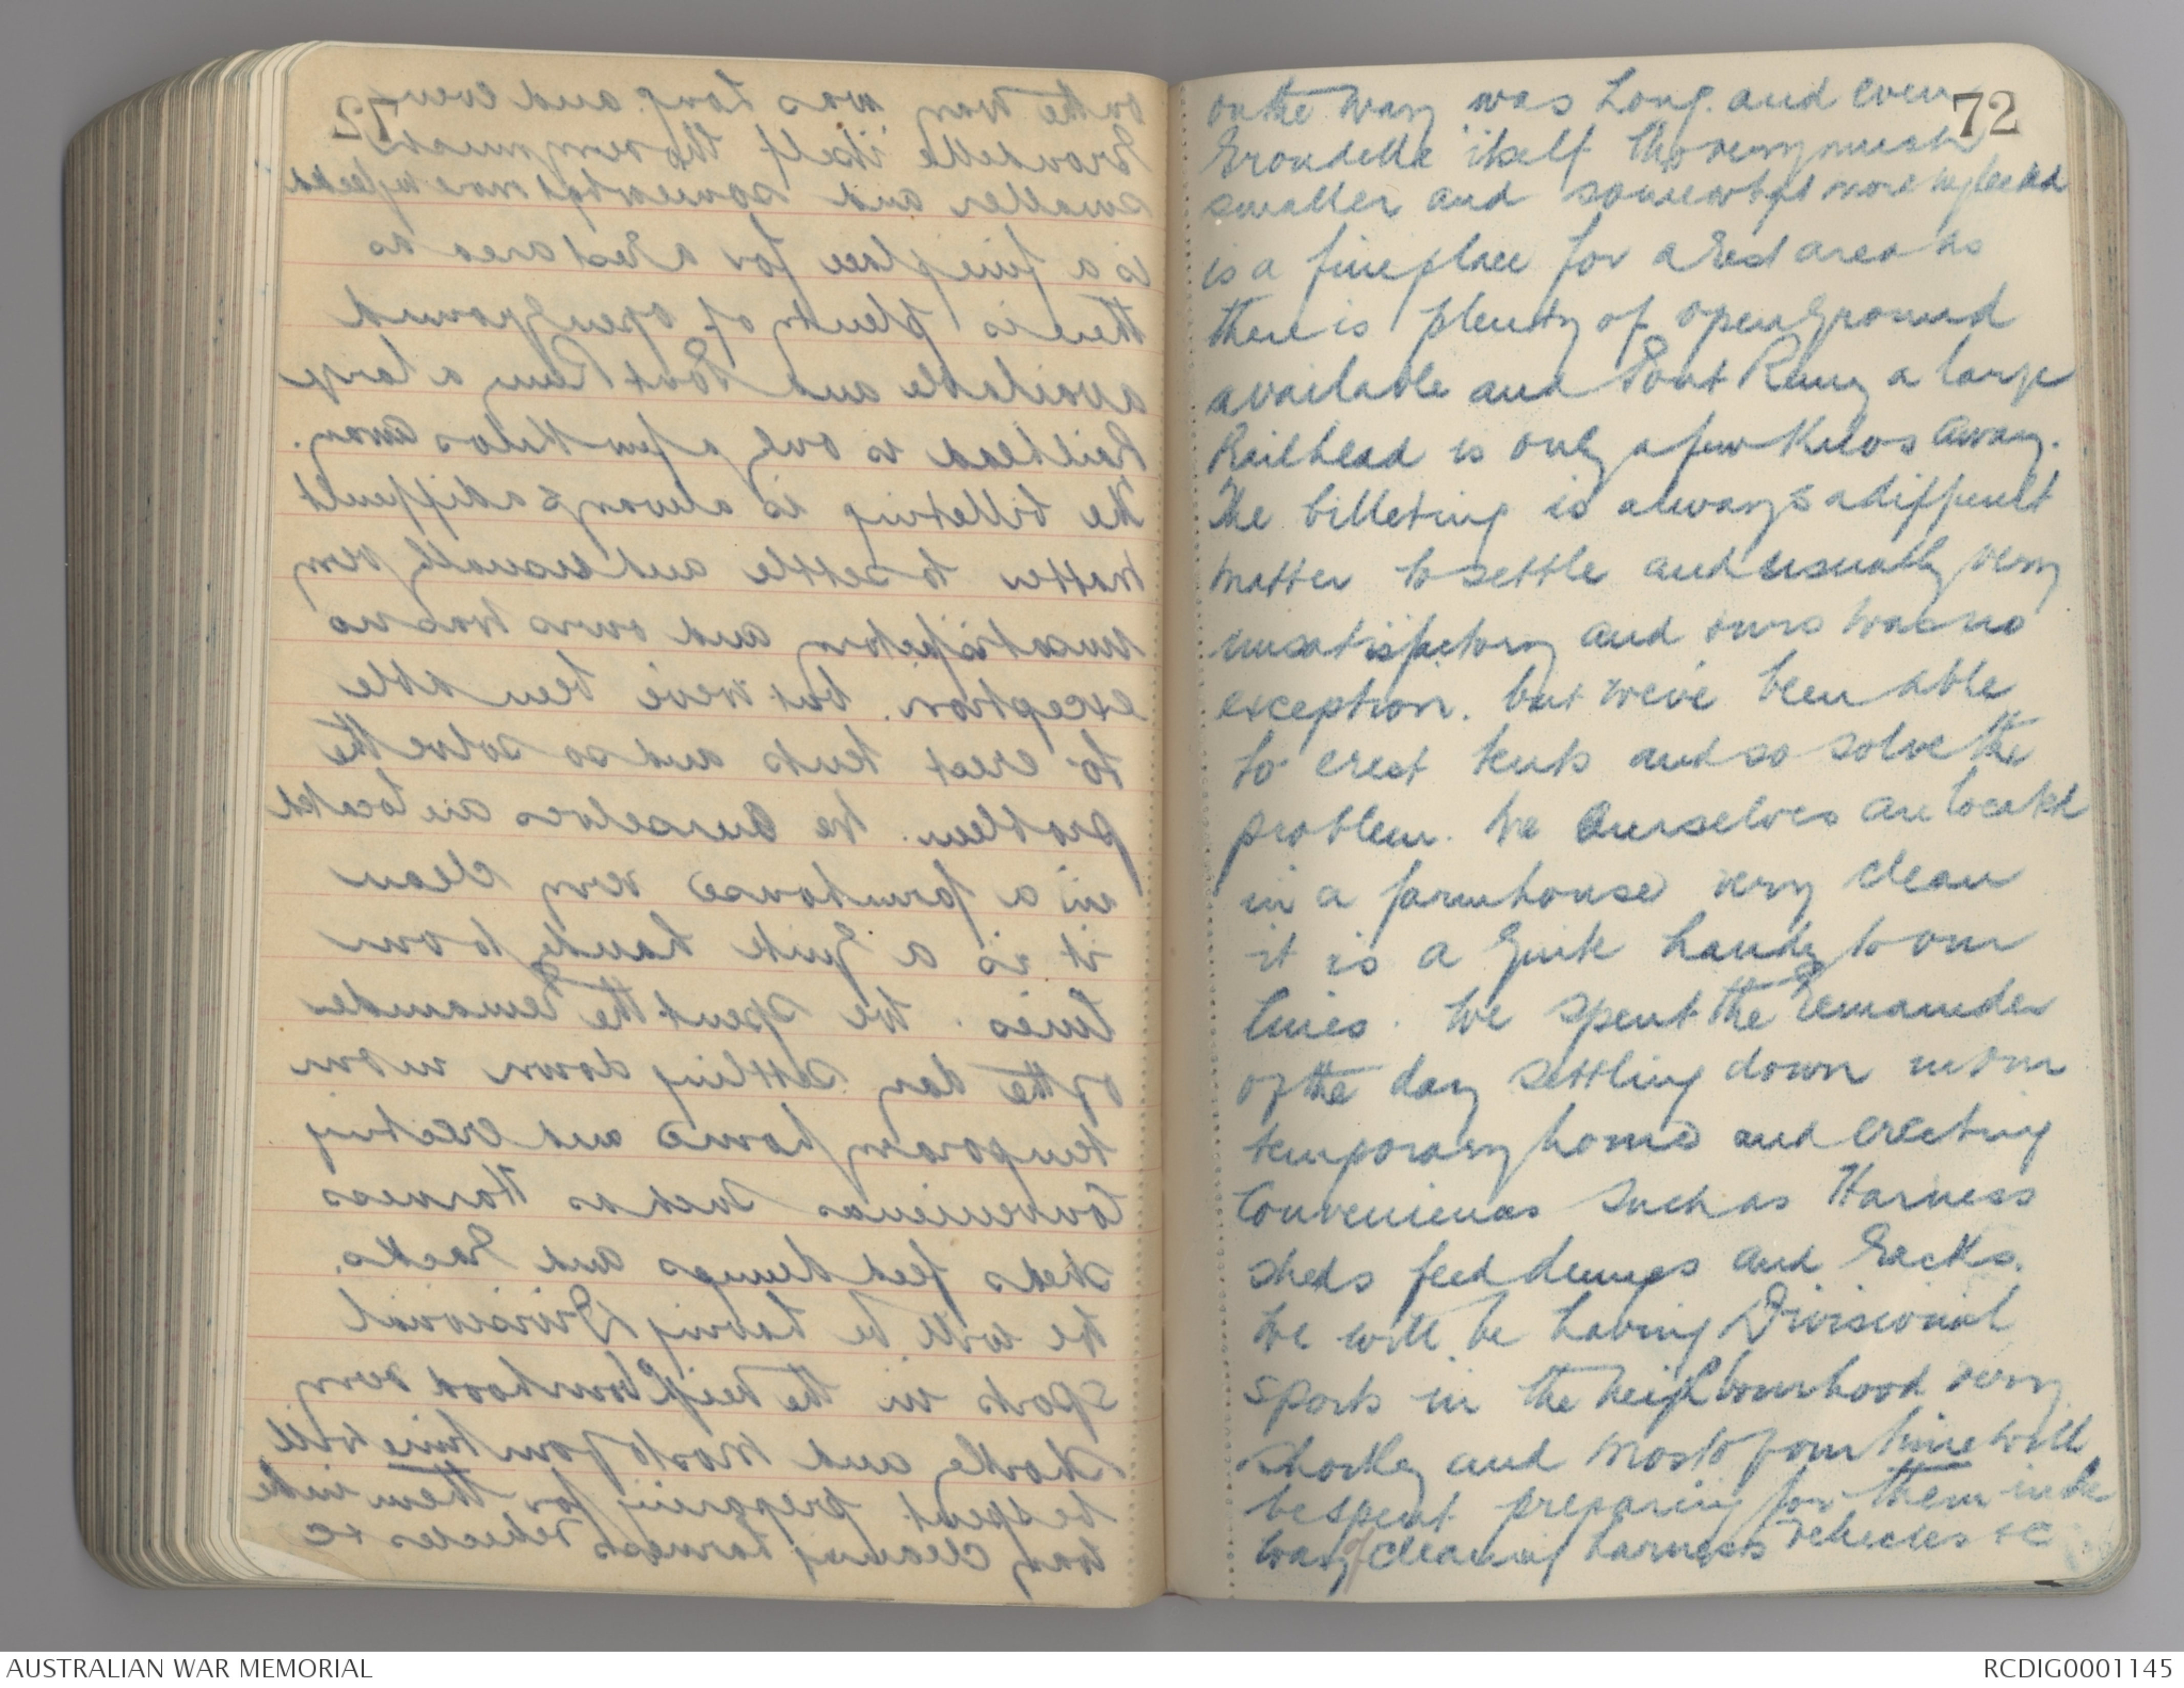 72
on the way was long. and even
Erondelle itself tho very much
smaller and somewhat more neglected
is a fine place for a rest area as
there is plenty of open ground
available and Pont Remy a large
Railhead is only a few Kilos away.
The billeting is always a difficult
matter to settle and usually very
unsatisfactory and ours was no
exception. but weve been able
to erect tents and so solve the
problem. We ourselves are located
in a farmhouse very clean
it is a quite handy to our
lines. We spent the remainder
of the day settling down in our
temporary home and erecting
Conveniences such as Harness
sheds feed dumps and racks.
We will be having Divisional
Sports in the neighbourhood very
shortly and most of our time will
be spent preparing for them in the
way of cleaning harness vehicles &c
AUSTRALIAN WAR MEMORIAL
RCDIG0001145